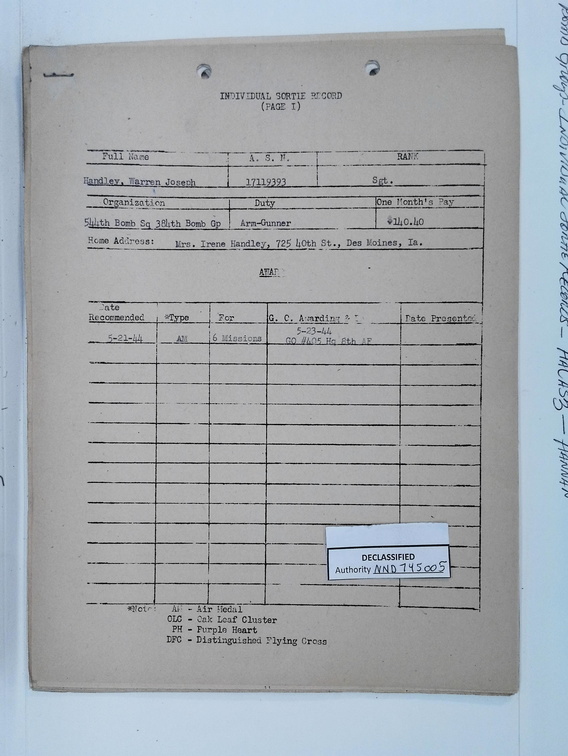 INDIVIDUAL SORTIE RECORD
(PAGE I)
Full Name A. S. N. RANK
Handley, Warren Joseph 17119393 Sgt.
Organization Duty One Month's Pay
544th Bomb Sq 384th Bomb Gp Arm-Gunner $140.40
Home Address: Mrs. Irene Handley, 725 40th St., Des Moines, Ia.
AWAR
Date
Recommended *Type For G. C. Awarding & Date Presented
5-23-44
5-21-44 AM 6 Missions GO #405 Hq 8th AF
DECLASSIFIED
Authority NND 745005
*Note: AM - Air Medal
OLC - Oak Leaf Cluster
PH - Purple Heart
DFC - Distinguished Flying Cross
Bomb Group - Individual Sortie Records - - HANNAN